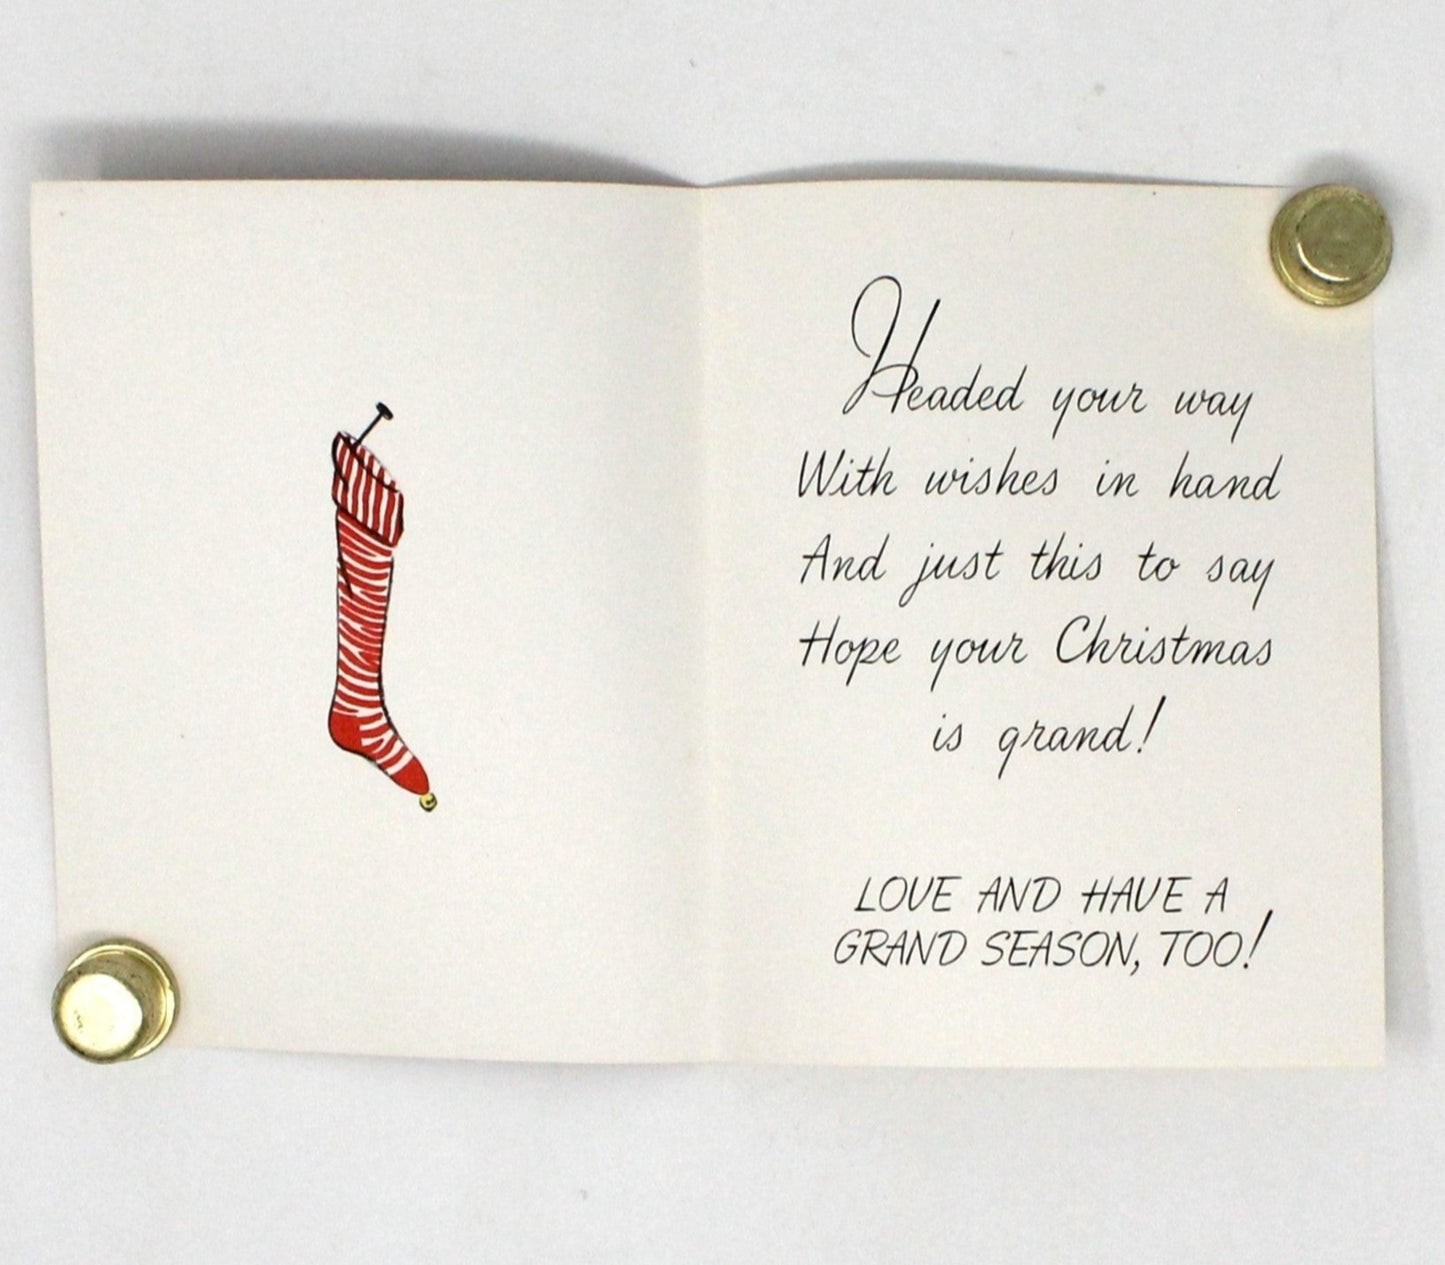 Headed your way
With wishes in hand
And just this to say
Hope your Christmas
is grand!
LOVE AND HAVE A
GRAND SEASON, TOO!